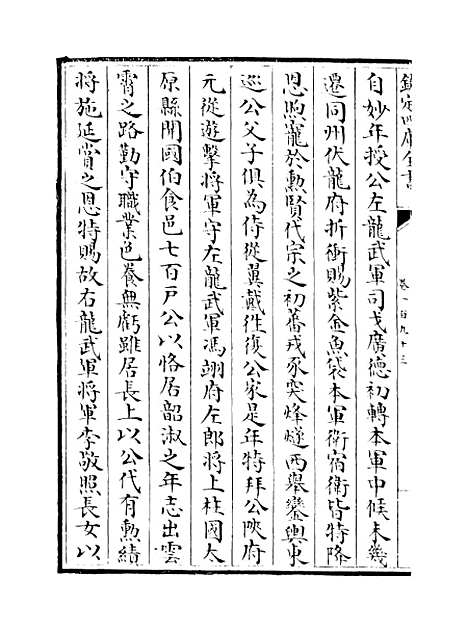 欽定四庫全書
卷一百九十三
自妙年授公左龍武軍司戈廣德初轉本軍中候未幾
遷同州伏龍府折衝賜紫金魚袋本軍衛宿衛皆特降
恩煦寵於勲賢代宗之初蕃戎豕突烽燧西舉鑾輿東
巡公父子俱為侍從翼戴徃復公家是年特拜公陜府
元從遊擊將軍守左龍武軍馮翊府左郎將上柱國太
原縣開國伯食邑七百戸公以恪居韶淑之年志出雲
霄之路勤守職業色養無虧雖居長上以公代有勲績
將施延賞之恩特賜故右龍武軍將軍李敬照長女以